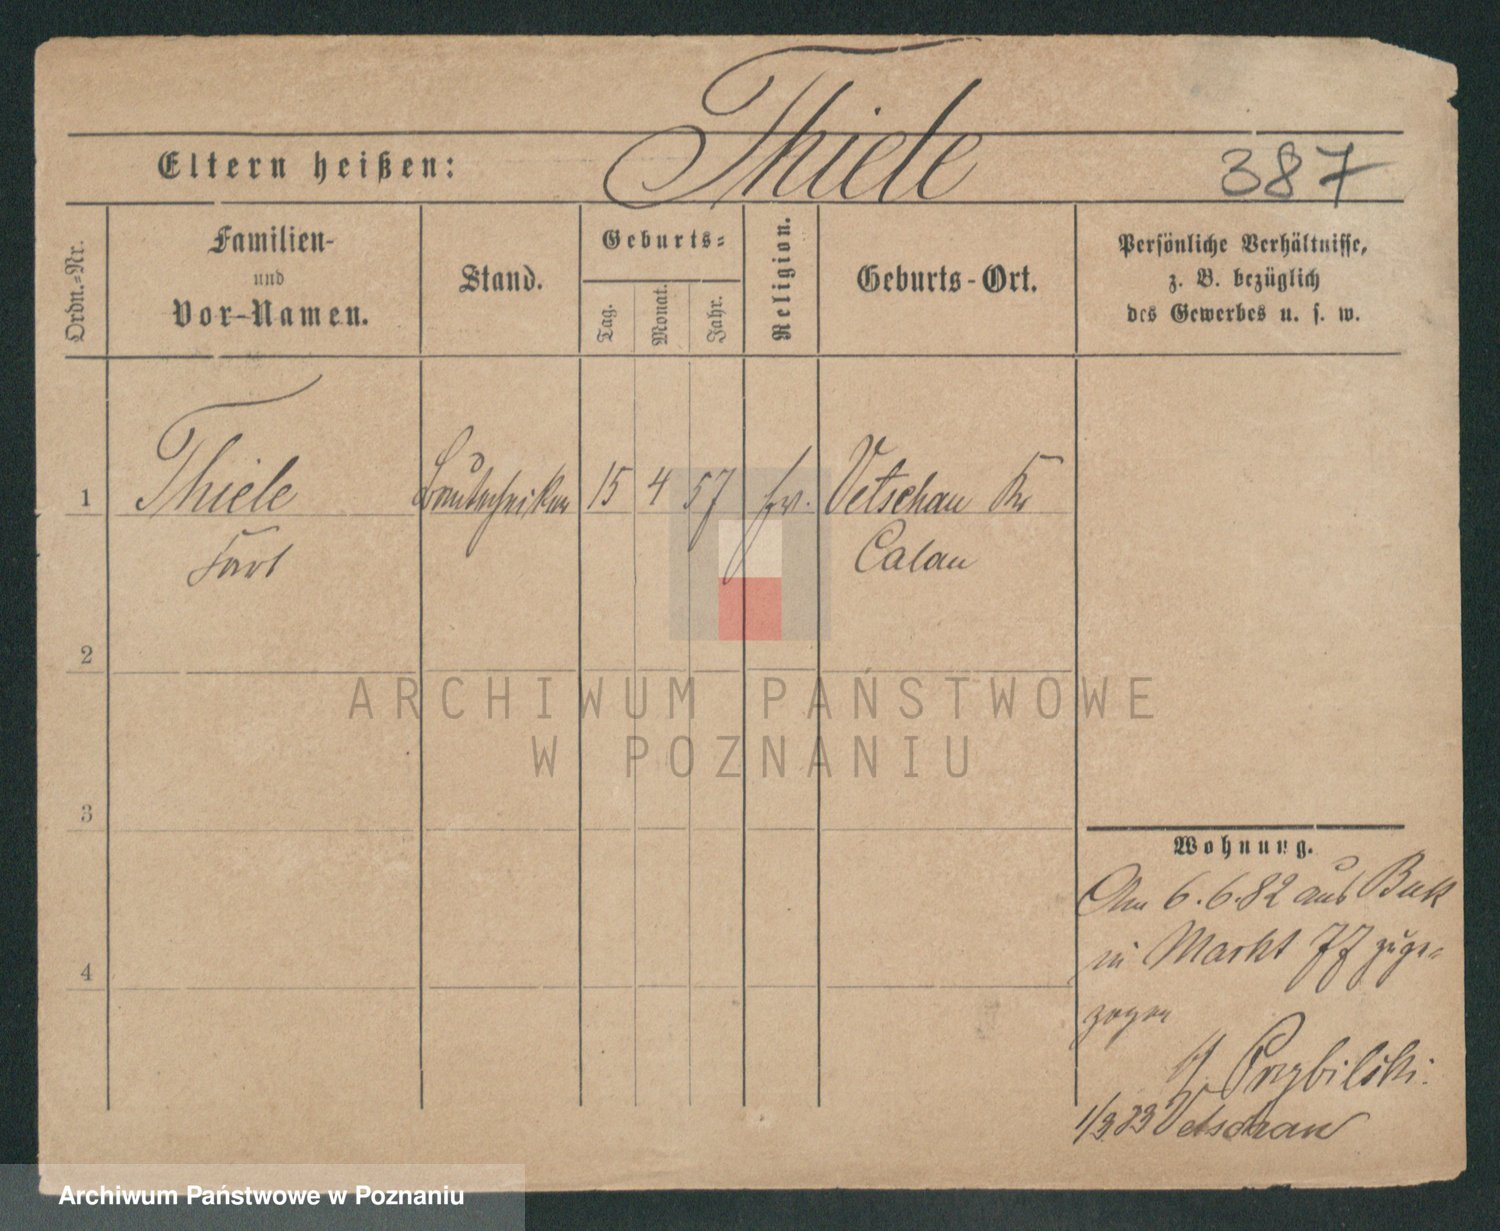 Thiele
Eltern heißen:
387
Ordn.-Nr.
Familien-
und
Vor-Namen.
Stand.
Geburts-
Tag.
Monat.
Jahr.
Religion.
Geburts-Ort.
Persönliche Verhältnisse,
z. B. bezüglich
des Gewerbes u. s. w.
1
Thiele
Karl
Bautechniker
15
4
57
ev.
Vetschau Kr
Calau
2
3
4
Wohnung.
Am 6.6.82 aus Buk
in Markt 77 zuge-
zogen
Przybilski.
1/3 83 Vetschau
ARCHIWUM PAŃSTWOWE
W POZNANIU
Archiwum Państwowe w Poznaniu